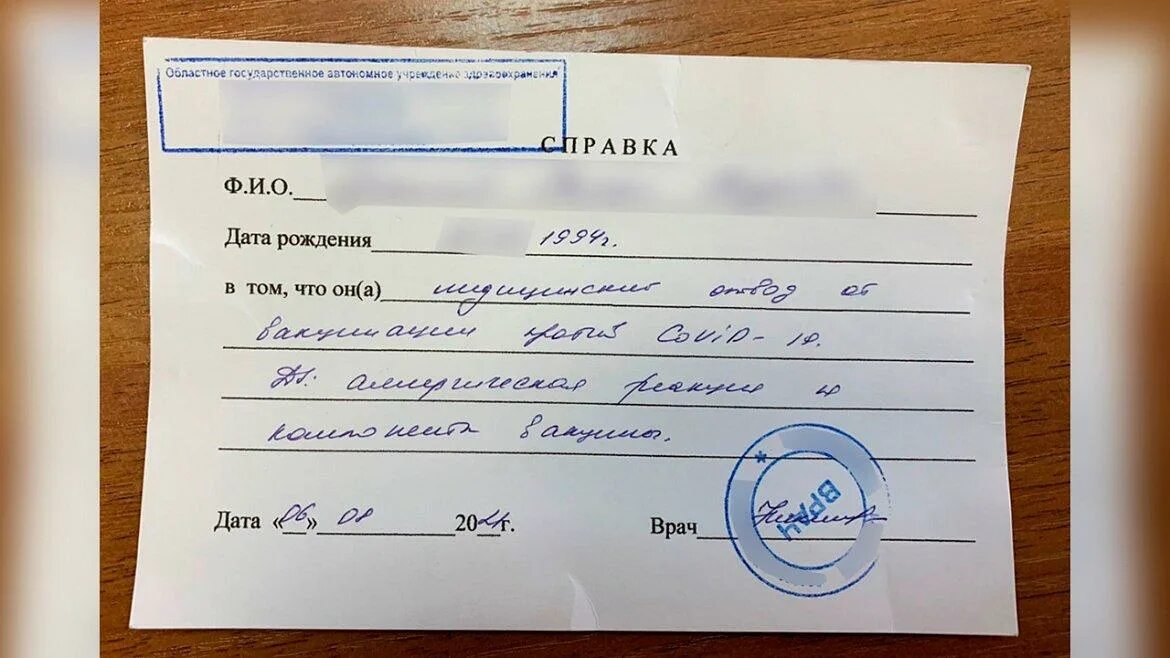 Областное государственное автономное учреждение здравоохранения
СПРАВКА
Ф.И.О.
Дата рождения 1994г.
в том, что он(а) медицинский отвод от
вакцинации против COViD-19.
Ds: аллергическая реакция на
компоненты вакцины.
Дата «06» 08 2021г. Врач
ВРАЧ